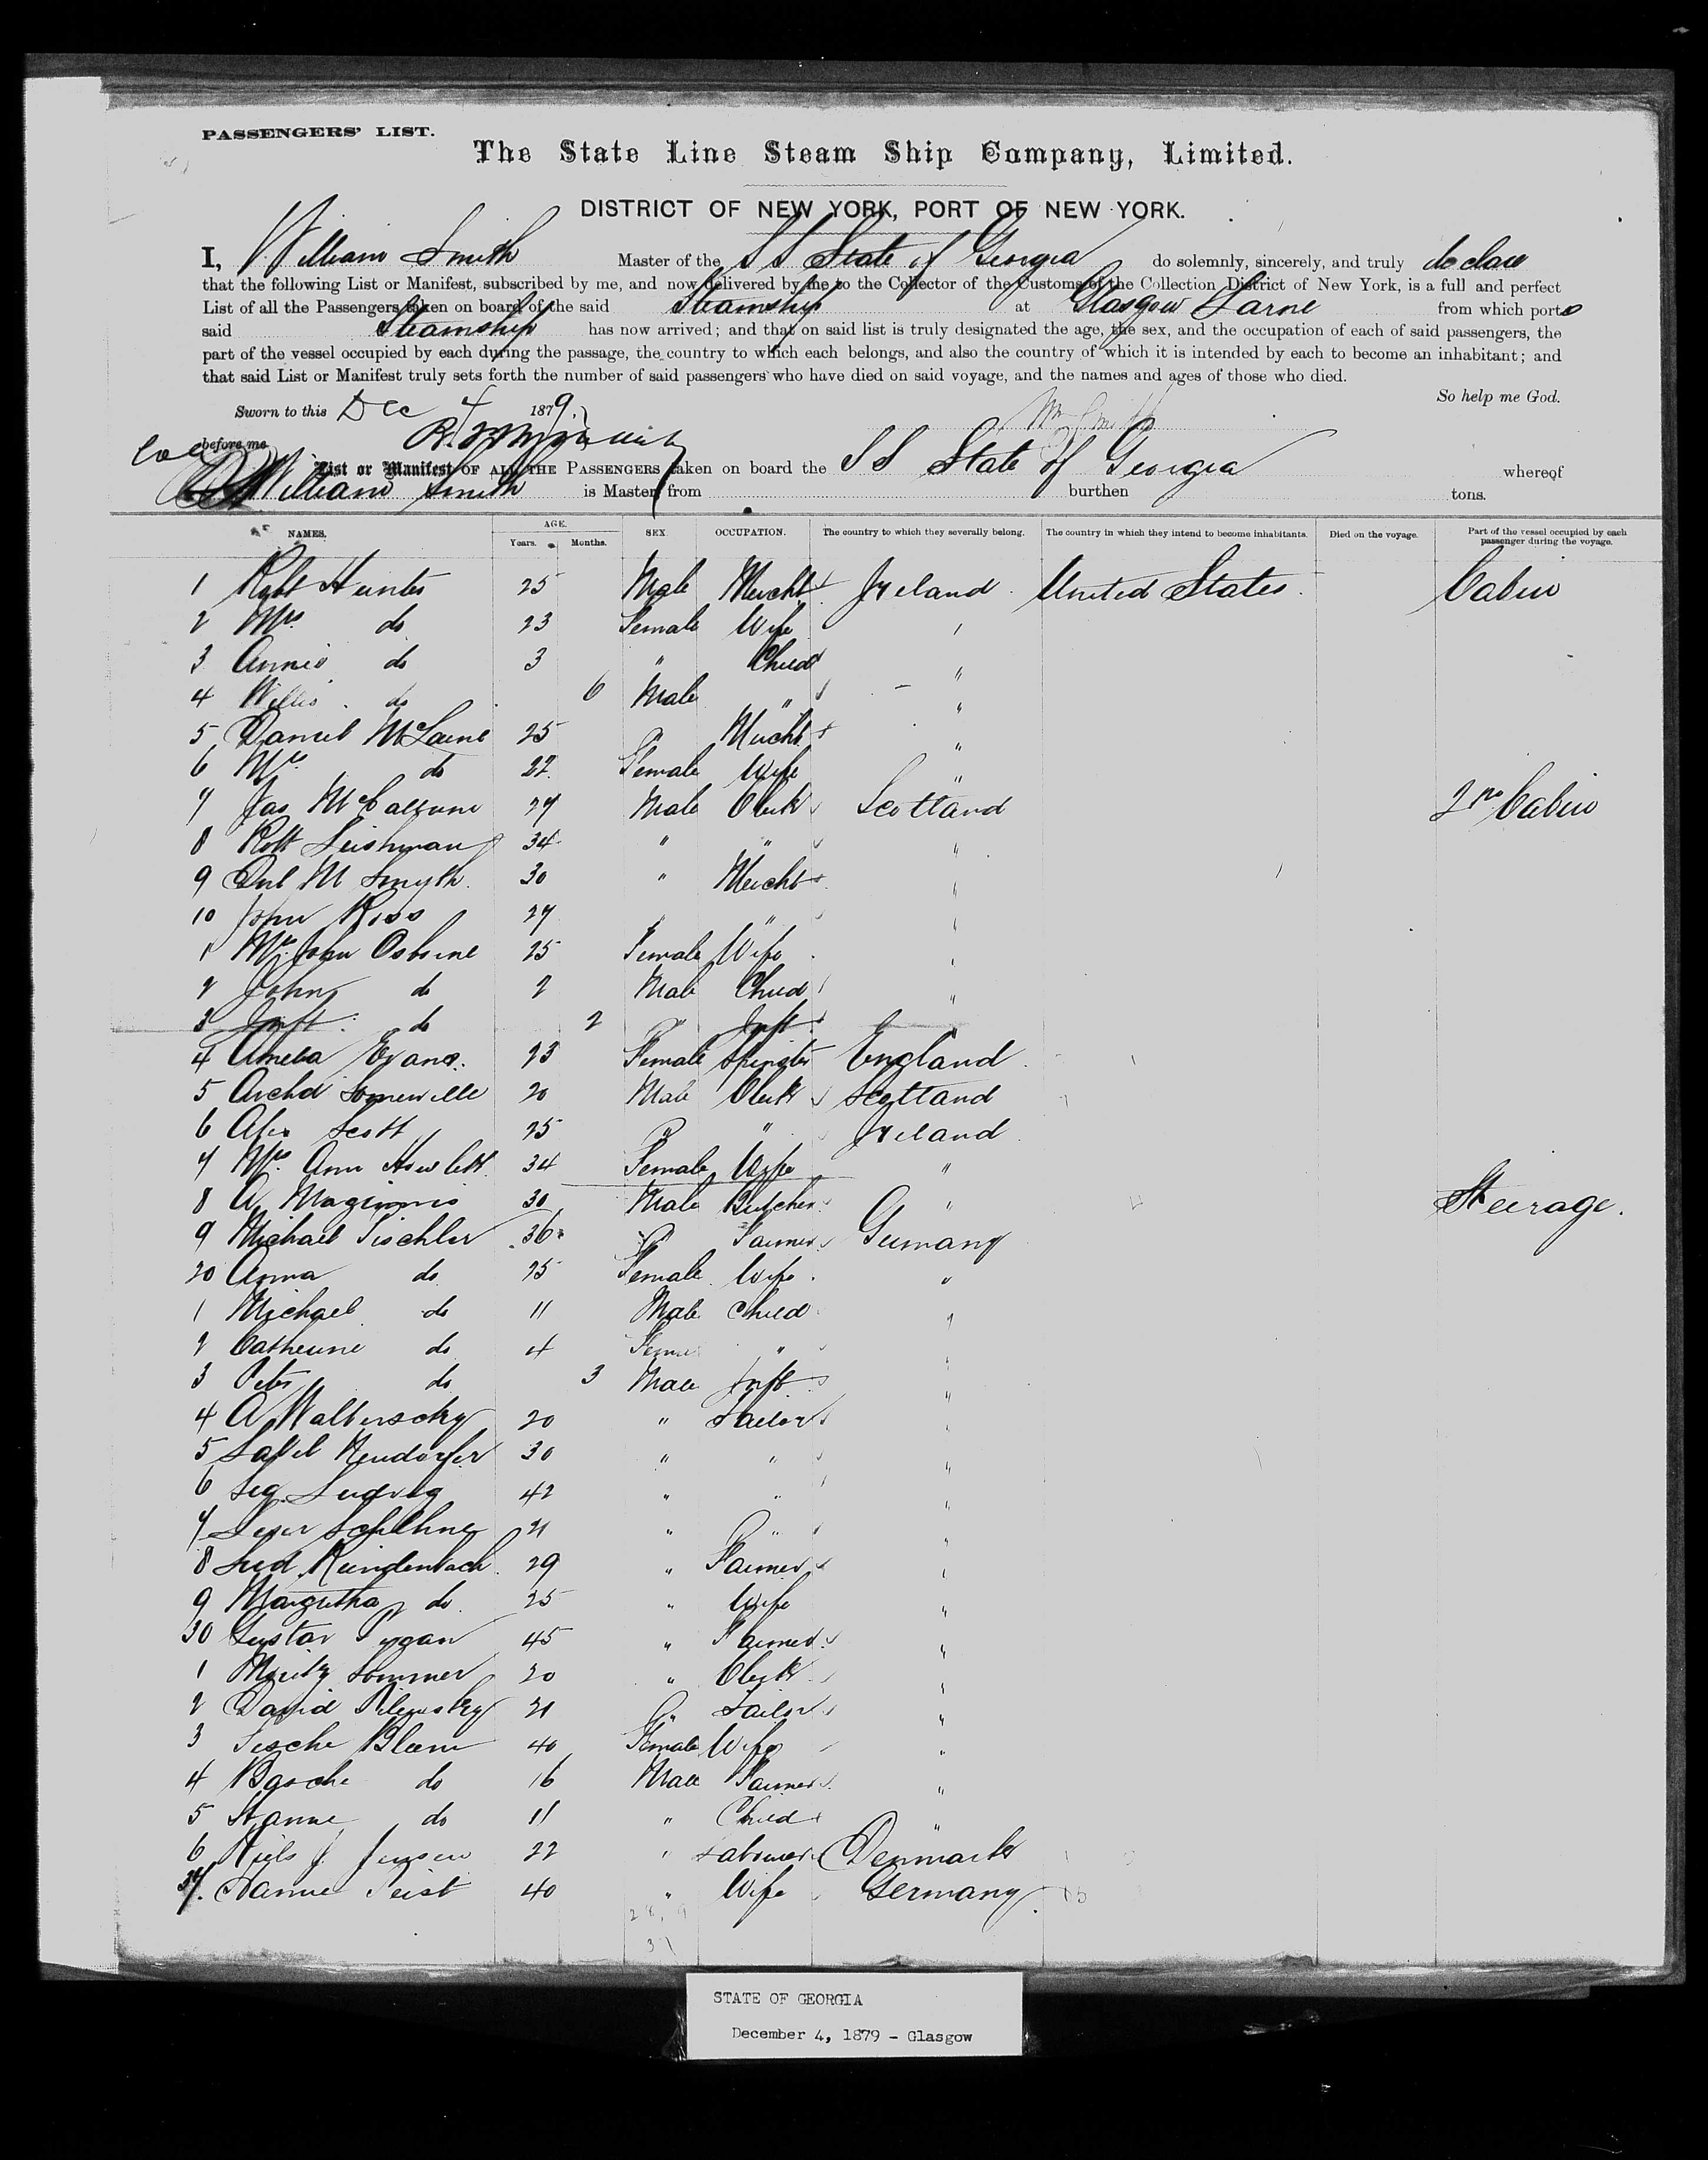 PASSENGERS' LIST.
The State Line Steam Ship Company, Limited.
DISTRICT OF NEW YORK, PORT OF NEW YORK.
I, William Smith Master of the SS State of Georgia do solemnly, sincerely, and truly declare
that the following List or Manifest, subscribed by me, and now delivered by me to the Collector of the Customs of the Collection District of New York, is a full and perfect
List of all the Passengers taken on board of the said Steamship at Glasgow Larne from which ports
said Steamship has now arrived; and that on said list is truly designated the age, the sex, and the occupation of each of said passengers, the
part of the vessel occupied by each during the passage, the country to which each belongs, and also the country of which it is intended by each to become an inhabitant; and
that said List or Manifest truly sets forth the number of said passengers who have died on said voyage, and the names and ages of those who died.
So help me God.
Sworn to this Dec 4 1879.
Wm Smith
before me
List or Manifest OF ALL THE PASSENGERS taken on board the SS State of Georgia whereof
William Smith is Master, from burthen tons.
NAMES. AGE. Years. Months. SEX. OCCUPATION. The country to which they severally belong. The country in which they intend to become inhabitants. Died on the voyage. Part of the vessel occupied by each passenger during the voyage.
1 Robt Hunter 25 Male Mercht Ireland United States Cabin
2 Mrs do 23 Female Wife "
3 Annie do 3 " Child "
4 Willie do 6 Male " "
5 Daniel McLaine 25 " Mercht "
6 Mrs do 22 Female Wife "
7 Jas McCallum 27 Male Clerk Scotland 2nd Cabin
8 Robt Leishman 34 " " "
9 Dnl M Smyth 30 " Mercht "
10 John Ross 27 " " "
1 Mrs John Osborne 25 Female Wife "
2 John do 2 Male Child "
3 Inft do 2 " Inft "
4 Amelia Evans 23 Female Spinster England
5 Archd Somerville 20 Male Clerk Scotland
6 Alex Scott 25 " " Ireland
7 Mrs Ann Howlett 34 Female Wife "
8 A Maginnis 30 Male Butcher " Steerage.
9 Michael Tischler 36 " Farmer Germany
20 Anna do 25 Female Wife "
1 Michael do 11 Male Child "
2 Catherine do 4 Female " "
3 Peter do 3 Male Inft "
4 A Walberschy 20 " Tailor "
5 Neudorfer 30 " " "
6 Sig. Ludvig 42 " " "
7 21 " " "
8 29 " Farmer "
9 Margretha do 25 " Wife "
30 Gustav 45 " Farmer "
1 Moritz Sommer 20 " Clerk "
2 David 21 " Tailor "
3 Blum 40 Female Wife "
4 Basche do 16 Male Farmer "
5 Hanne do 11 " Child "
6 Niels J. Jensen 22 " Labourer Denmark
37. Hanne Feist 40 " Wife Germany
STATE OF GEORGIA
December 4, 1879 - Glasgow